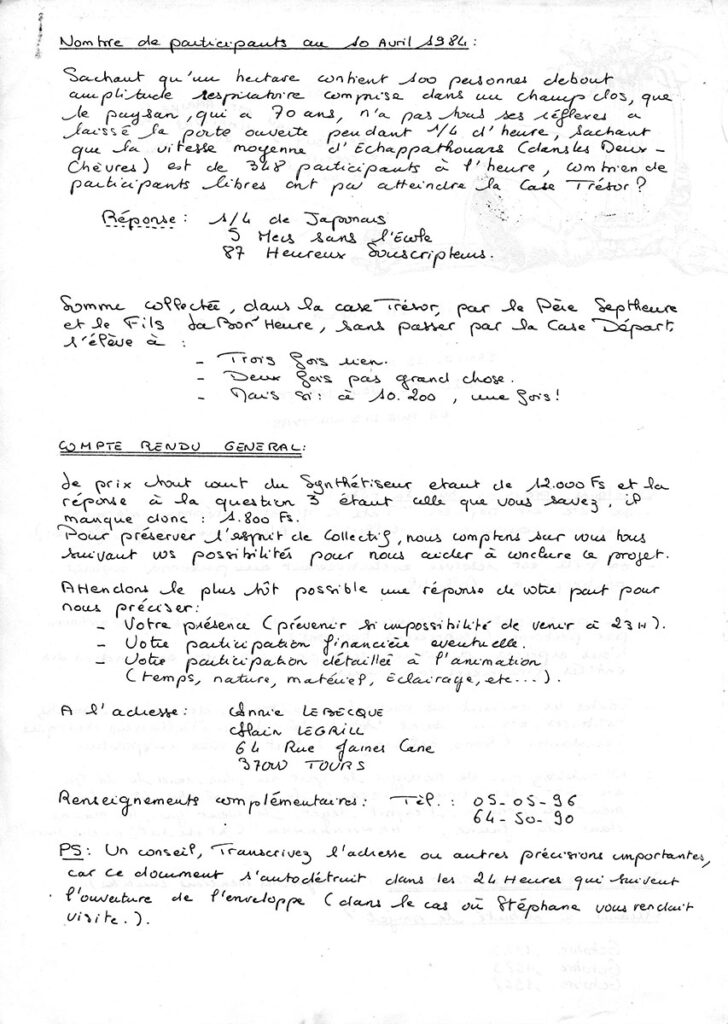 Nombre de participants au 10 Avril 1984 :
Sachant qu'un hectare contient 100 personnes debout
amplitude respiratoire comprise dans un champ clos, que
le paysan, qui a 70 ans, n'a pas tous ses réflexes a
laissé la porte ouverte pendant 1/4 d'heure, sachant
que la vitesse moyenne d'Echappathouars (dans les Deux-
Chèvres) est de 348 participants à l'heure, combien de
participants libres ont pu atteindre la Case Trésor ?
Réponse : 1/4 de Japonais
5 Mecs sans l'Ecole
87 Heureux Souscripteurs.
Somme collectée, dans la case Trésor, par le Père Septheure
et le Fils La Bon'Heure, sans passer par la Case Départ,
s'élève à :
- Trois fois rien.
- Deux fois pas grand chose.
- Mais si : à 10.200, une fois !
COMPTE RENDU GENERAL :
Le prix tout court du Synthétiseur etant de 12.000 Fs et la
réponse à la question 3 étant celle que vous savez, il
manque donc : 1.800 Fs.
Pour préserver l'esprit de Collectif, nous comptons sur vous tous
suivant vos possibilités pour nous aider à conclure ce projet.
Attendons le plus tôt possible une réponse de votre part pour
nous préciser :
- Votre présence (prévenir si impossibilité de venir à 23H).
- Votre participation financière eventuelle.
- Votre participation détaillée à l'animation
(temps, nature, matériel, éclairage, etc...).
A l'adresse : Annie LEBECQUE
Alain LEGRILL
64 Rue James Cane
37000 TOURS
Renseignements complémentaires : Tèl. : 05-05-96
64-50-90
PS : Un conseil, Transcrivez l'adresse ou autres précisions importantes,
car ce document s'autodétruit dans les 24 Heures qui suivent
l'ouverture de l'enveloppe (dans le cas où Stéphane vous rendrait
visite.).